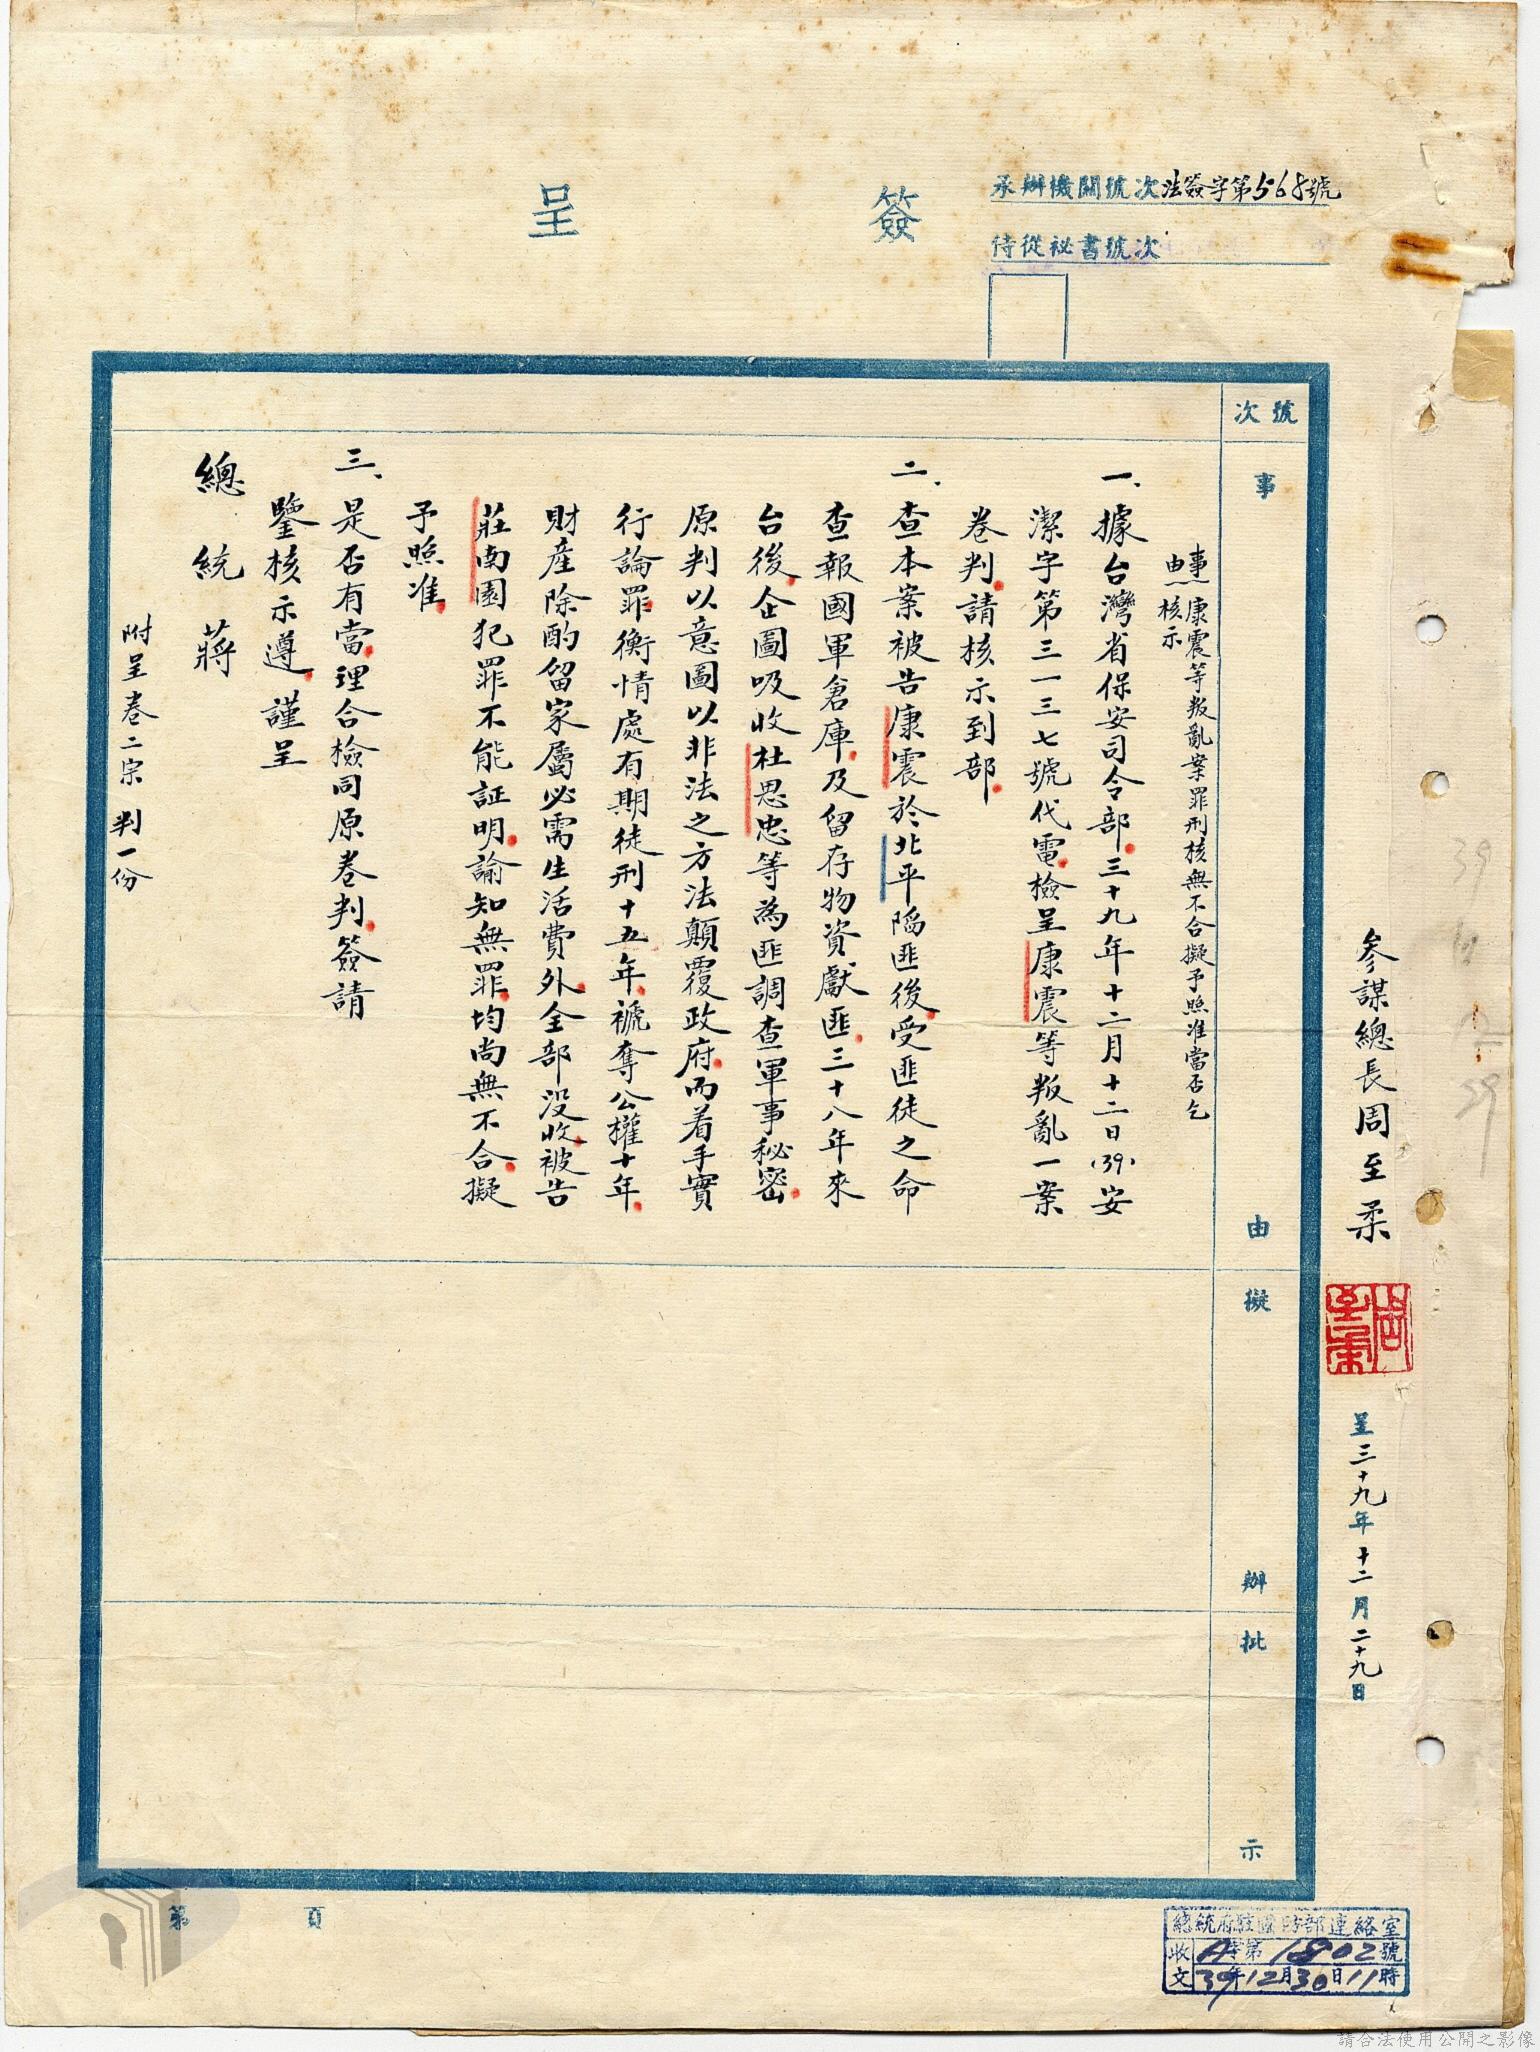 簽呈
承辦機關號次法簽字第568號
侍從祕書號次
參謀總長周至柔
周至柔
呈三十九年十二月二十九日
號次
事由
擬辦
批示
事由 康震等叛亂案罪刑核無不合擬予照准當否乞
核示
一、據台灣省保安司令部三十九年十二月十二日(39)安
潔字第三一三七號代電檢呈康震等叛亂一案
卷判請核示到部
二、查本案被告康震於北平陷匪後受匪徒之命
查報國軍倉庫及留存物資獻匪三十八年來
台後企圖吸收杜思忠等為匪調查軍事秘密
原判以意圖以非法之方法顛覆政府而着手實
行論罪衡情處有期徒刑十五年褫奪公權十年
財產除酌留家屬必需生活費外全部沒收被告
莊南園犯罪不能証明諭知無罪均尚無不合擬
予照准
三、是否有當理合檢同原卷判簽請
鑒核示遵謹呈
總統 蔣
附呈卷二宗判一份
第 頁
總統府駐國防部連絡室
收文 A字第1802號
39年12月30日11時
39
12
29
請合法使用公開之影像